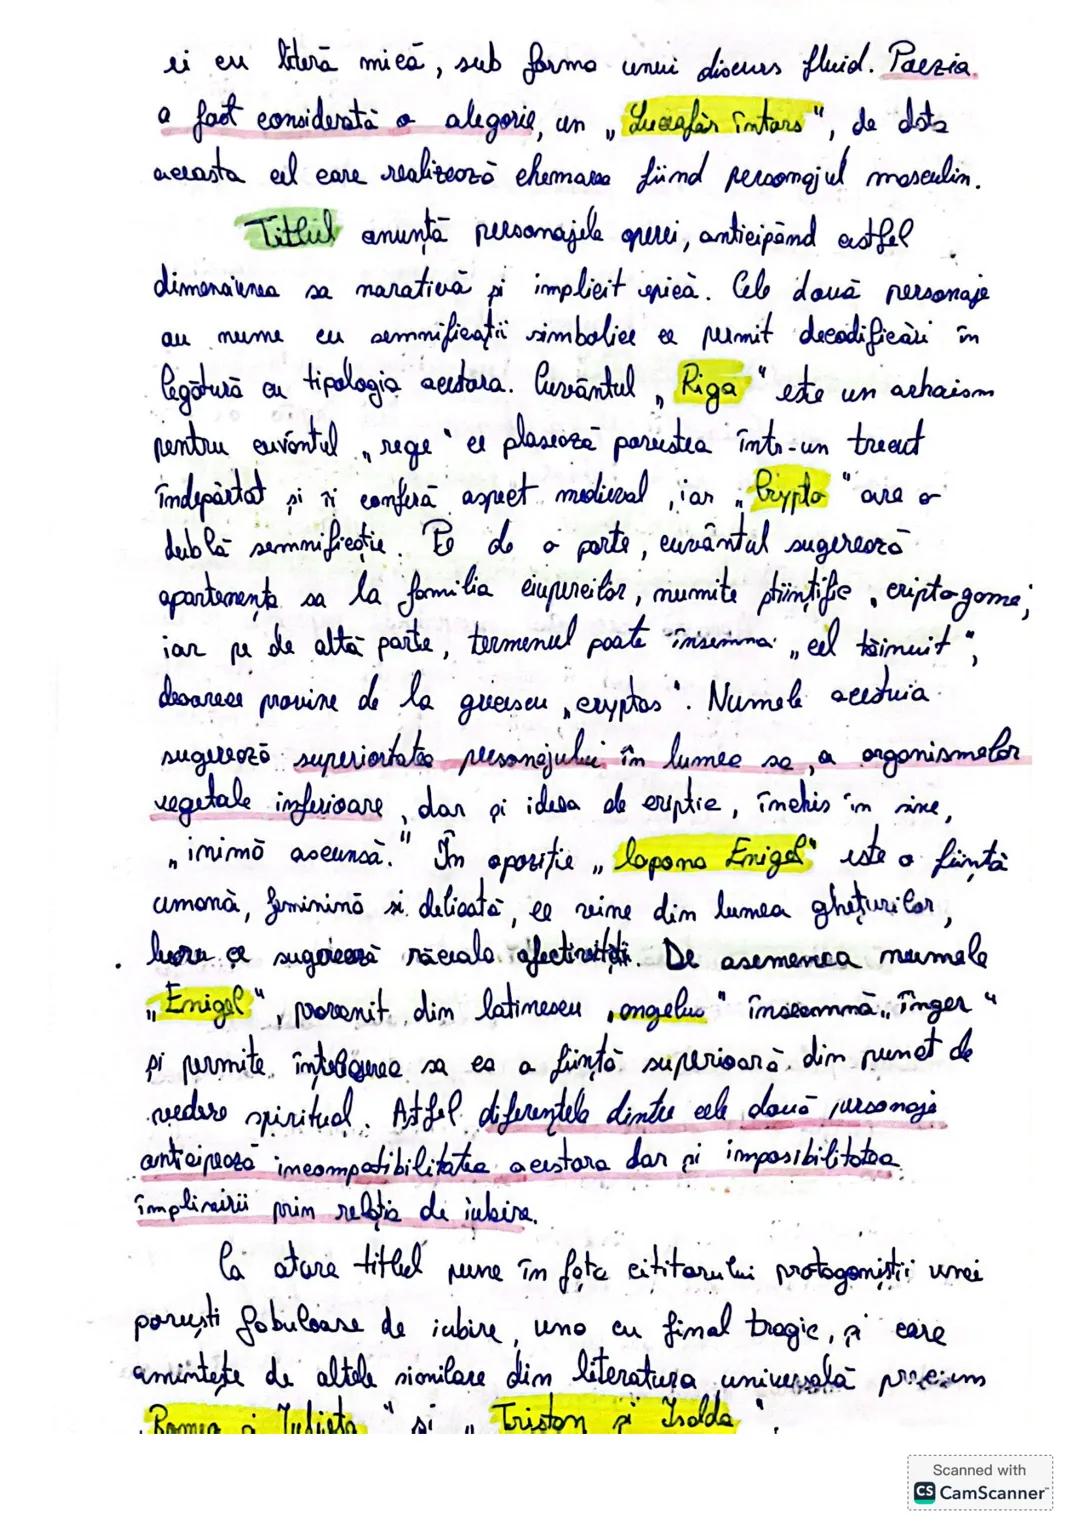 ei cu literă mică, sub forma unui discurs fluid. Poezia
a fost considerată o alegorie, un „Luceafăr întors", de data
aceasta cel care realizează chemarea fiind personajul masculin.
Titlul anunță personajele operei, anticipând astfel
dimensiunea sa narativă și implicit epică. Cele două personaje
au nume cu semnificații simbolice ce permit decodificări în
legătură cu tipologia acestora. Cuvântul „Riga" este un arhaism
pentru cuvântul „rege" ce plasează povestea într-un trecut
îndepărtat și îi conferă aspect medieval, iar „Crypto" are o
dublă semnificație. Pe de o parte, cuvântul sugerează
apartenența sa la familia ciupercilor, numite științific „criptogame;
iar pe de altă parte, termenul poate însemna „cel tăinuit",
deoarece provine de la grecescu „cryptos". Numele acestuia
sugerează superioritatea personajului în lumea sa, a organismelor
vegetale inferioare, dar și ideea de criptic, închis în sine,
„inimă ascunsă." În opoziție „lapona Enigel" este o ființă
umană, feminină si delicată, ce vine din lumea ghețurilor,
lucru ce sugerează răceala afectivității. De asemenea numele
„Enigel", provenit din latinescu „angelus" înseamnă „înger"
și permite înțelegerea sa ca o ființă superioară din punct de
vedere spiritual. Astfel diferențele dintre cele două personaje
anticipează incompatibilitatea acestora dar și imposibilitatea
împlinirii prin relația de iubire.
Ca atare titlul pune în fața cititorului protagoniștii unei
povești fabuloase de iubire, una cu final tragic, și care
amintește de altele similare din literatura universală precum
„Romeo și Julieta" și „Tristan și Isolda".
Scanned with
CS CamScanner